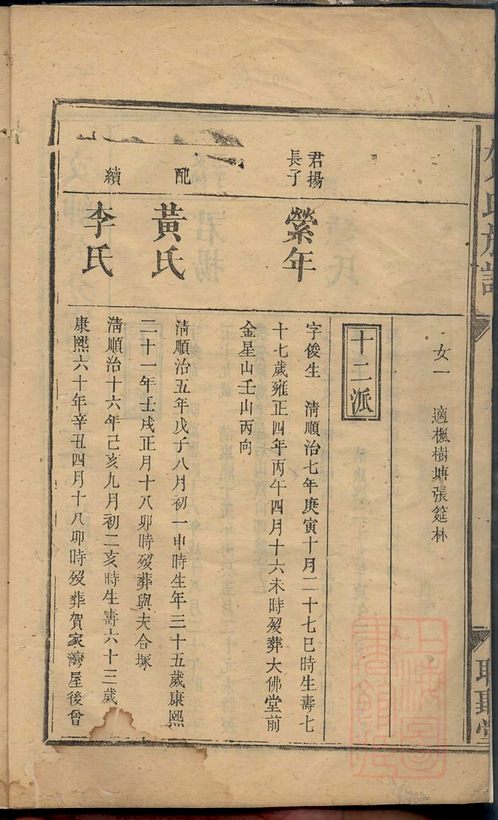 氏族譜
聽彝堂
女一 適楓樹塘張筵林
十二派
君揚
長子
縈年
字俊生 清順治七年庚寅十月二十七巳時生壽七
十七歲雍正四年丙午四月十六未時歿葬大佛堂前
金星山壬山丙向
配
黃氏
清順治五年戊子八月初一申時生年三十五歲康熙
二十一年壬戌正月十八卯時歿葬與夫合塚
續
李氏
清順治十六年己亥九月初二亥時生壽六十三歲
康熙六十年辛丑四月十八卯時歿葬賀家灣屋後曾